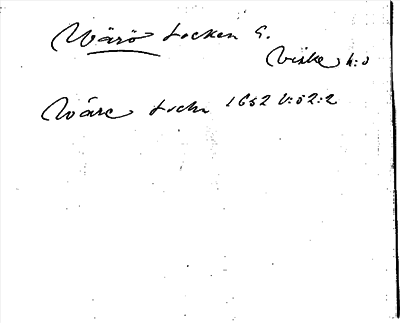 Wärö Socken G.
Viske h:d
Wåre Sochn 1652 V:52:2